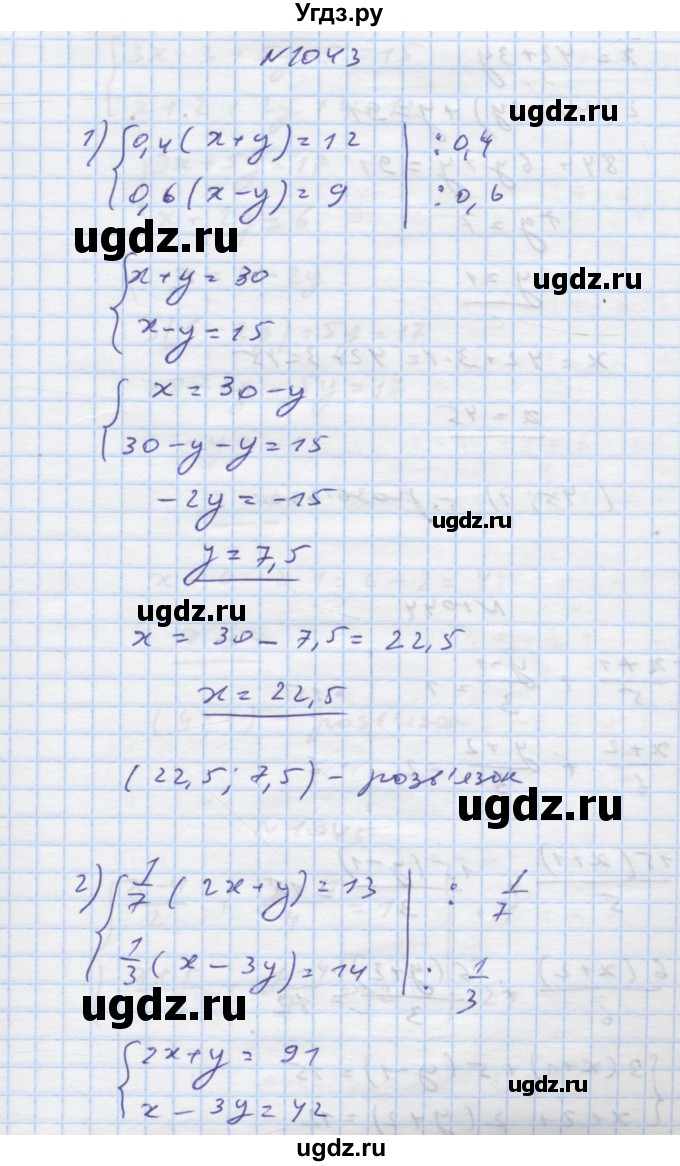 Угдз.ру
N1043
1) { 0,4(x+y)=12 | :0,4
0,6(x-y)=9 | :0,6
ugdz.ru
ugdz.ru
{ x+y=30
x-y=15
ugdz.ru
{ x=30-y
30-y-y=15
-2y=-15
ugdz.ru
y=7,5
ugdz.ru
x = 30-7,5=22,5
x=22,5
(22,5; 7,5) - розв'язок
ugdz.ru
2) { 1/7 (2x+y)=13 | : 1/7
1/3 (x-3y)=14 | : 1/3
ugdz.ru
{ 2x+y=91
x-3y=42
ugdz.ru
ugdz.ru